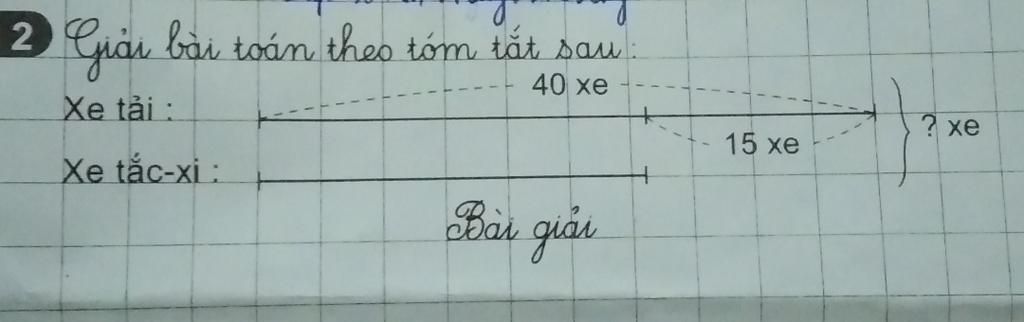 2 Giải bài toán theo tóm tắt sau:
40 xe
Xe tải :
15 xe
? xe
Xe tắc-xi :
Bài giải